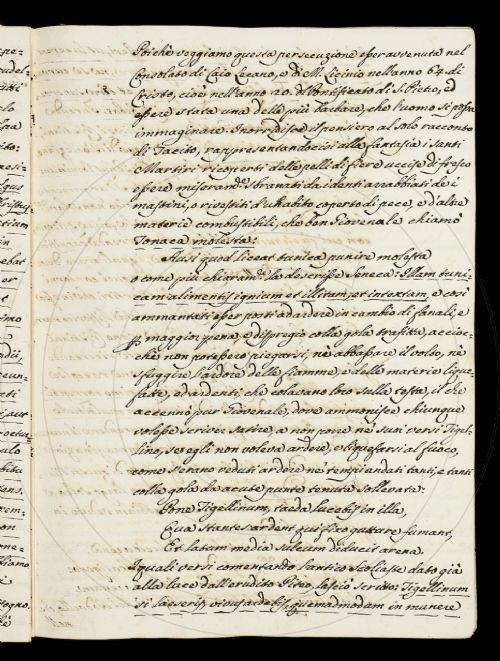 Poichè veggiamo questa persecuzione esser avvenuta nel
Consolato di Caio Lecano, e di M. Licinio nell'anno 64. di
Cristo, cioè nell'anno 20. di Pontificato di S. Pietro, ed
essere stata una delle più barbare, che l'uomo si possa
immaginare. Inorridisce il pensiero al solo racconto
di Tacito, rappresentandoci alla fantasia i Santi
Martiri ricoperti delle pelli di fiere uccise di fresco
essere miseramte. sbranati da i denti arrabbiati de i
mastini, o rivestiti d'un abito coperto di pece, e d'altre
materie combustibili, che ben Giovenale chiamò
Tonaca molesta:
Ausi quod liceat tunica punire molesta
o come più chiaramte. la descrisse Seneca: Illam tuni-
cam alimentis ignium et illitam, et intextam, e così
ammantati esser posti ad ardere in cambio di fanali, e
maggior pena, e dispregio colla gola trafitta, accioc-
chè non potessero piegarsi, nè abbassare il volto, nè
sfuggire l'ardore delle fiamme, e delle materie lique-
fatte, ed ardenti, che colavano loro sulla testa, il che
accennò pur Giovenale, dove ammonisce chiunque
volesse scriver satire, a non porre ne' suoi versi Tigel-
lino, se egli non voleva ardere, e liquefarsi al fuoco,
come s'erano veduti ardere ne' tempi andati tanti, e tanti
colla gola da acute punte tenuta sollevata:
Pone Tigellinum, taeda lucebis in illa,
Qua stantes ardent qui fixo gutture fumant,
Et latum media sulcum diducit arena.
I quali versi comentando l'antico Scoliaste dato già
alla luce dall'erudito Piteo, lasciò scritto: Tigellinum
si laeseris, vivus ardebis, quemadmodum in munere